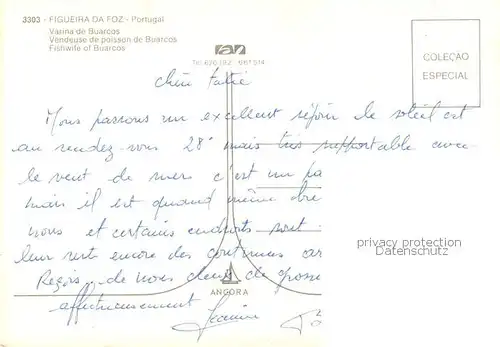 3303 - FIGUEIRA DA FOZ - Portugal
Varina de Buarcos
Vendeuse de poisson de Buarcos
Fishwife of Buarcos
COLEÇÃO
ESPECIAL
ran
Chère
Nous passons un excellent séjour le soleil est
au rendez-vous 28° mais très supportable avec
le vent de mer c'est un pa
mais il est quand même
nous et certains endroits sont
leur reste encore des coutumes
Reçois de nous deux de grosse
affectueusement
ANCORA
privacy protection
Datenschutz